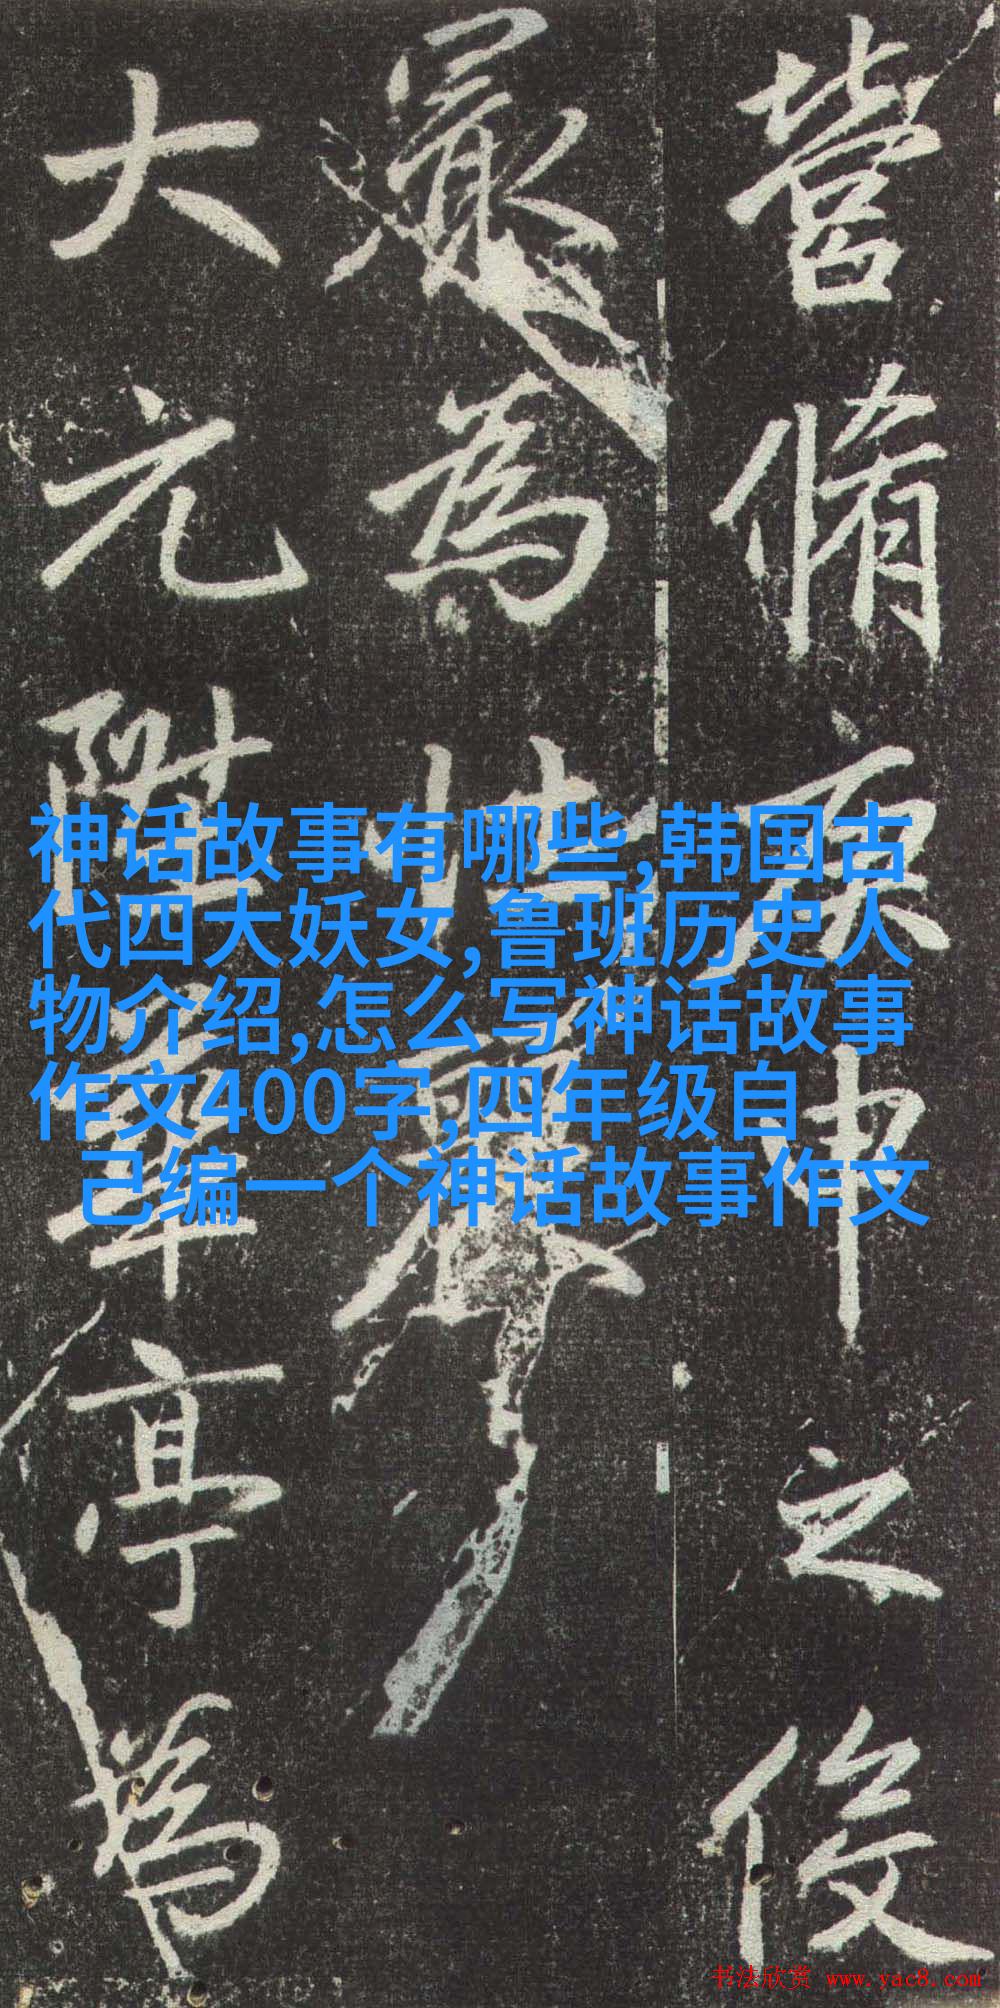 營脩庚申之後
最為壮麗
大元
亭為
神话故事有哪些,韩国古
代四大妖女,鲁班历史人
物介绍,怎么写神话故事
作文400字,四年级自
己编一个神话故事作文
书法欣赏 www.yac8.com